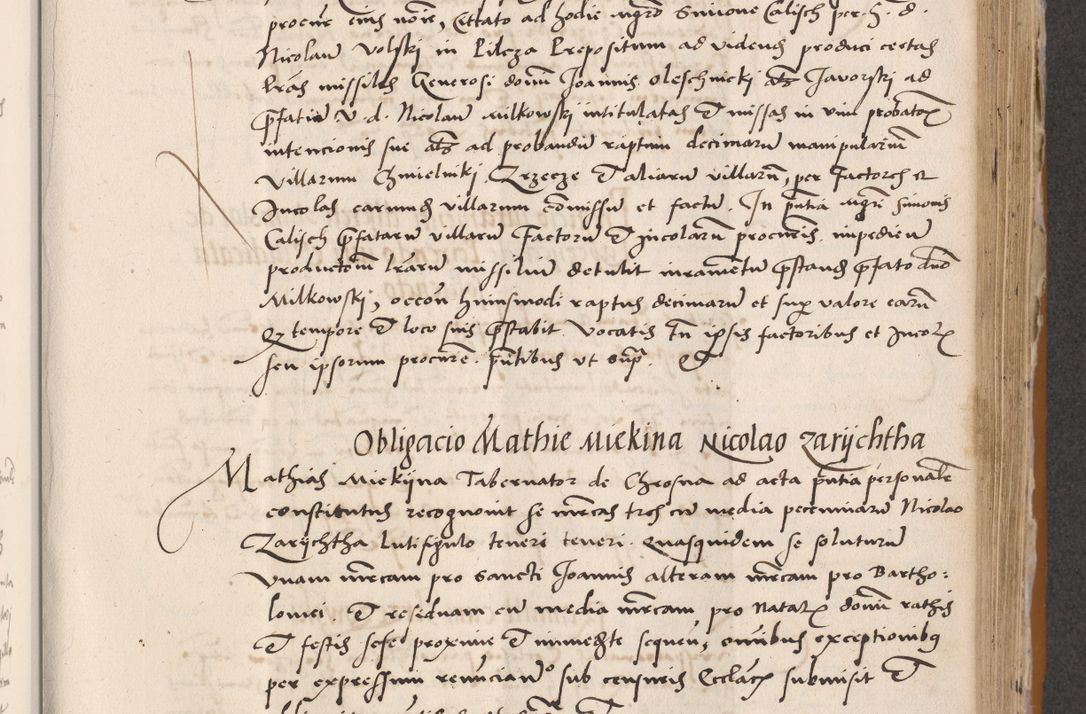 procur eius noie, Cttato ad hodie mgro Simone Calisch per. h. d.
Nicolau Volski in Pileza Prepositum ad videnď produci certas
lras missiles Generosi domi Joannis Oleschnicki als Javorski ad
pfatu V. d. Nicolau Milkowski intitulatas et missas in vim probator
intencionis sue als ad probandu raptum decimaru manipulariu
villarum Chmielniki Zrzecze et aliaru villaru, per factores et
Incolas earumd villarum comissu et factu. In pntia mgri Simonis
Calisch pfataru villaru factoru et Incolaru procuris. impedien
productom lraru missiliu detulit iuramentu pstand pfato dno
Milkowski, occon huiusmodi raptus decimaru et sup valore earu
q tempore et loco suis pstabit. Vocatis tn ipsis factoribus et Incol
seu ipsorum procure. pntibus vt supr.
Obligacio Mathie Miekina Nicolao Zarijchtha
Mathias Miekijna Tabernator de Chrosna ad acta pntia personale
constitutus recognouit se mrcas tres cu media pecuniaru Nicolao
Zarijchtha lutifigulo teneri teneri. Quasquidem se soluturu
vnam mrcam pro Sancti Joannis alteram mrcam pro Bartho:
lomei. et residuam cu media mrcam pro natal domi rathis
et festis sese proxime et immedte sequen, omnibus exceptionibq
per expressum renuncian sub censuris Ecclac submisit et